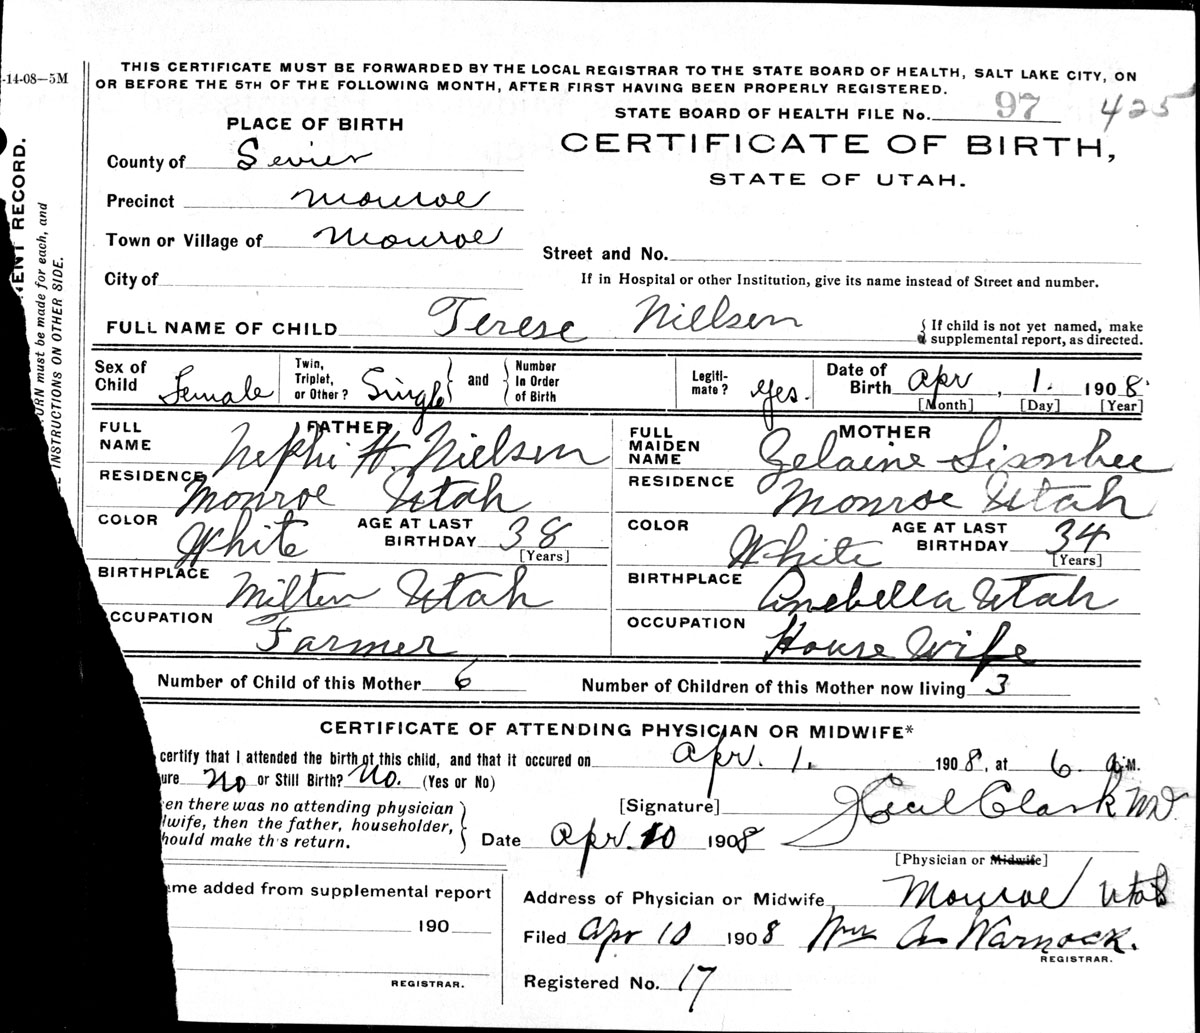 -14-08—5M
THIS CERTIFICATE MUST BE FORWARDED BY THE LOCAL REGISTRAR TO THE STATE BOARD OF HEALTH, SALT LAKE CITY, ON
OR BEFORE THE 5TH OF THE FOLLOWING MONTH, AFTER FIRST HAVING BEEN PROPERLY REGISTERED.
STATE BOARD OF HEALTH FILE No. 97 425
PLACE OF BIRTH
CERTIFICATE OF BIRTH,
STATE OF UTAH.
County of Sevier
Precinct Monroe
Town or Village of Monroe
Street and No.
City of
If in Hospital or other Institution, give its name instead of Street and number.
FULL NAME OF CHILD Terese Nielsen
If child is not yet named, make
supplemental report, as directed.
Sex of Child Female
Twin, Triplet, or Other? Single and Number In Order of Birth
Legiti-mate? Yes.
Date of Birth Apr, 1. 1908
[Month] [Day] [Year]
FATHER
FULL NAME Nephi H. Nielsen
RESIDENCE Monroe Utah
COLOR White AGE AT LAST BIRTHDAY 38
[Years]
BIRTHPLACE Milton Utah
CCUPATION Farmer
MOTHER
FULL MAIDEN NAME Zelaine Sisonbee
RESIDENCE Monroe Utah
COLOR White AGE AT LAST BIRTHDAY 34
[Years]
BIRTHPLACE Anebella Utah
OCCUPATION House Wife
Number of Child of this Mother 6 Number of Children of this Mother now living 3
CERTIFICATE OF ATTENDING PHYSICIAN OR MIDWIFE*
certify that I attended the birth of this child, and that it occured on Apr. 1. 1908, at 6 a.M.
ure No or Still Birth? No. (Yes or No)
en there was no attending physician
wife, then the father, householder,
hould make th's return.
[Signature] Cecil Clark MD.
Date Apr. 10 1908
[Physician or Midwife]
Address of Physician or Midwife, Monroe Utah
me added from supplemental report
190
REGISTRAR.
Filed Apr 10 1908 Wm A Warnock.
REGISTRAR.
Registered No. 17
ENT RECORD.
URN must be made for each, and
E INSTRUCTIONS ON OTHER SIDE.